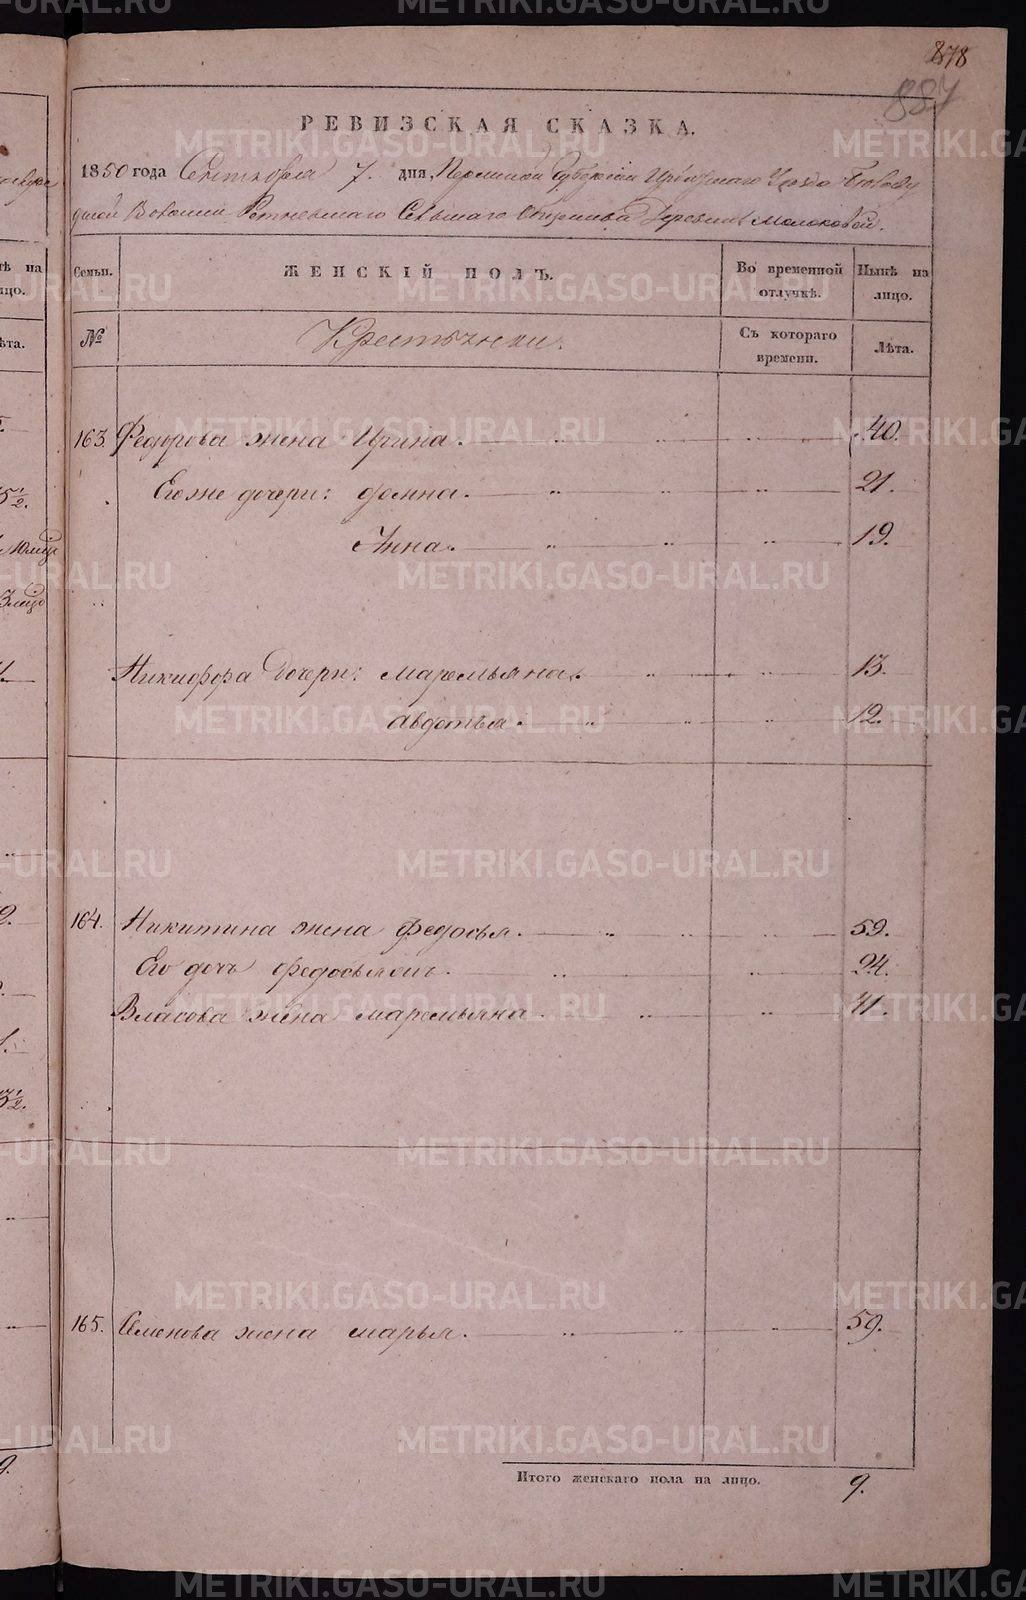 878
887
РЕВИЗСКАЯ СКАЗКА.
1850 года Сентября 7. дня, Пермской Губернии Ирбитскаго Уезда
Волости Сельскаго Общества Деревни Молоковой.
Семьи.
ЖЕНСКІЙ ПОЛЪ.
Во временной отлучкѣ.
Нынѣ на лицо.
№
Крестьянки.
Съ котораго времени.
Лѣта.
163. Федорова жена Ирина. 40.
Его же дочери: Фекла. 21.
Анна. 19.
Никифора дочери: маремьяна. 13.
авдотья. 12.
164. Никитина жена федосья. 59.
Его дочь 24.
Власова жена маремьяна. 41.
165. Семенова жена марья. 59.
Итого женскаго пола на лицо. 9.
METRIKI.GASO-URAL.RU